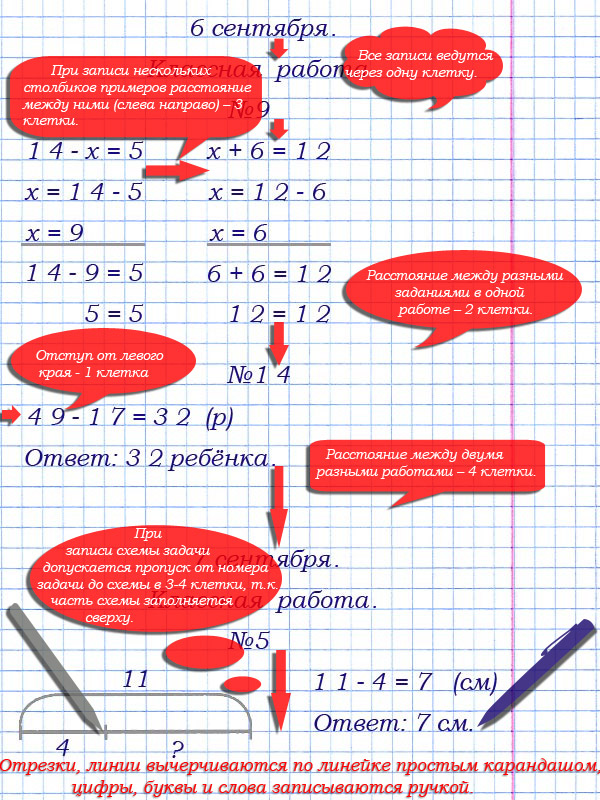 6 сентября.
Классная работа
Все записи ведутся
через одну клетку.
При записи нескольких
столбиков примеров расстояние
между ними (слева направо) – 3
клетки.
№9
1 4 - x = 5    x + 6 = 1 2
x = 1 4 - 5    x = 1 2 - 6
x = 9    x = 6
1 4 - 9 = 5    6 + 6 = 1 2
5 = 5    1 2 = 1 2
Расстояние между разными
заданиями в одной
работе – 2 клетки.
Отступ от левого
края - 1 клетка
№1 4
4 9 - 1 7 = 3 2 (р)
Ответ: 3 2 ребёнка.
Расстояние между двумя
разными работами – 4 клетки.
При
записи схемы задачи
допускается пропуск от номера
задачи до схемы в 3-4 клетки, т.к.
часть схемы заполняется
сверху.
7 сентября.
Классная работа.
№5
11
4    ?
1 1 - 4 = 7 (см)
Ответ: 7 см.
Отрезки, линии вычерчиваются по линейке простым карандашом,
цифры, буквы и слова записываются ручкой.